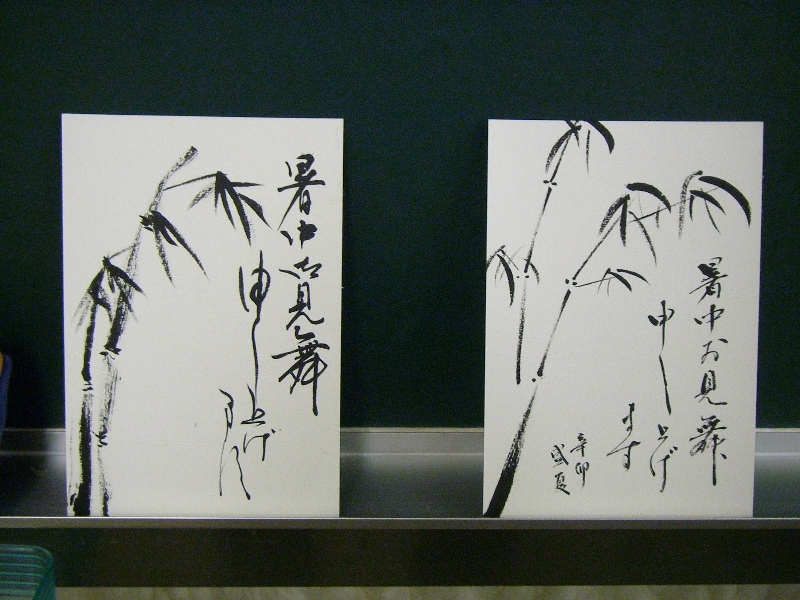 暑中お見舞
申し
上げ
ます
暑中お見舞
申し
上げ
ます
辛卯
盛夏